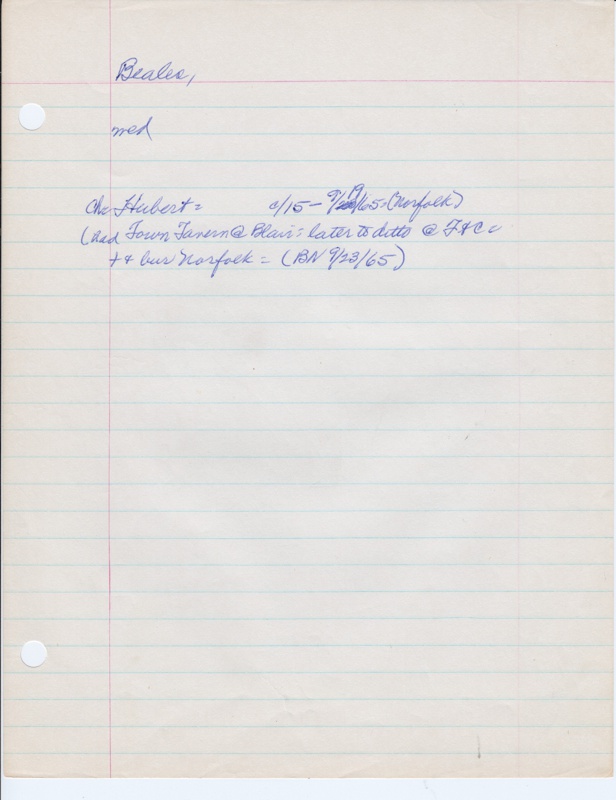 Beales,
med
Ch= Hubert= c/15 - 9/19/65= (Norfolk)
(had Town Tavern @ Blair; later to ditto @ Ft C=
+ + bur Norfolk = (BN 9/23/65)